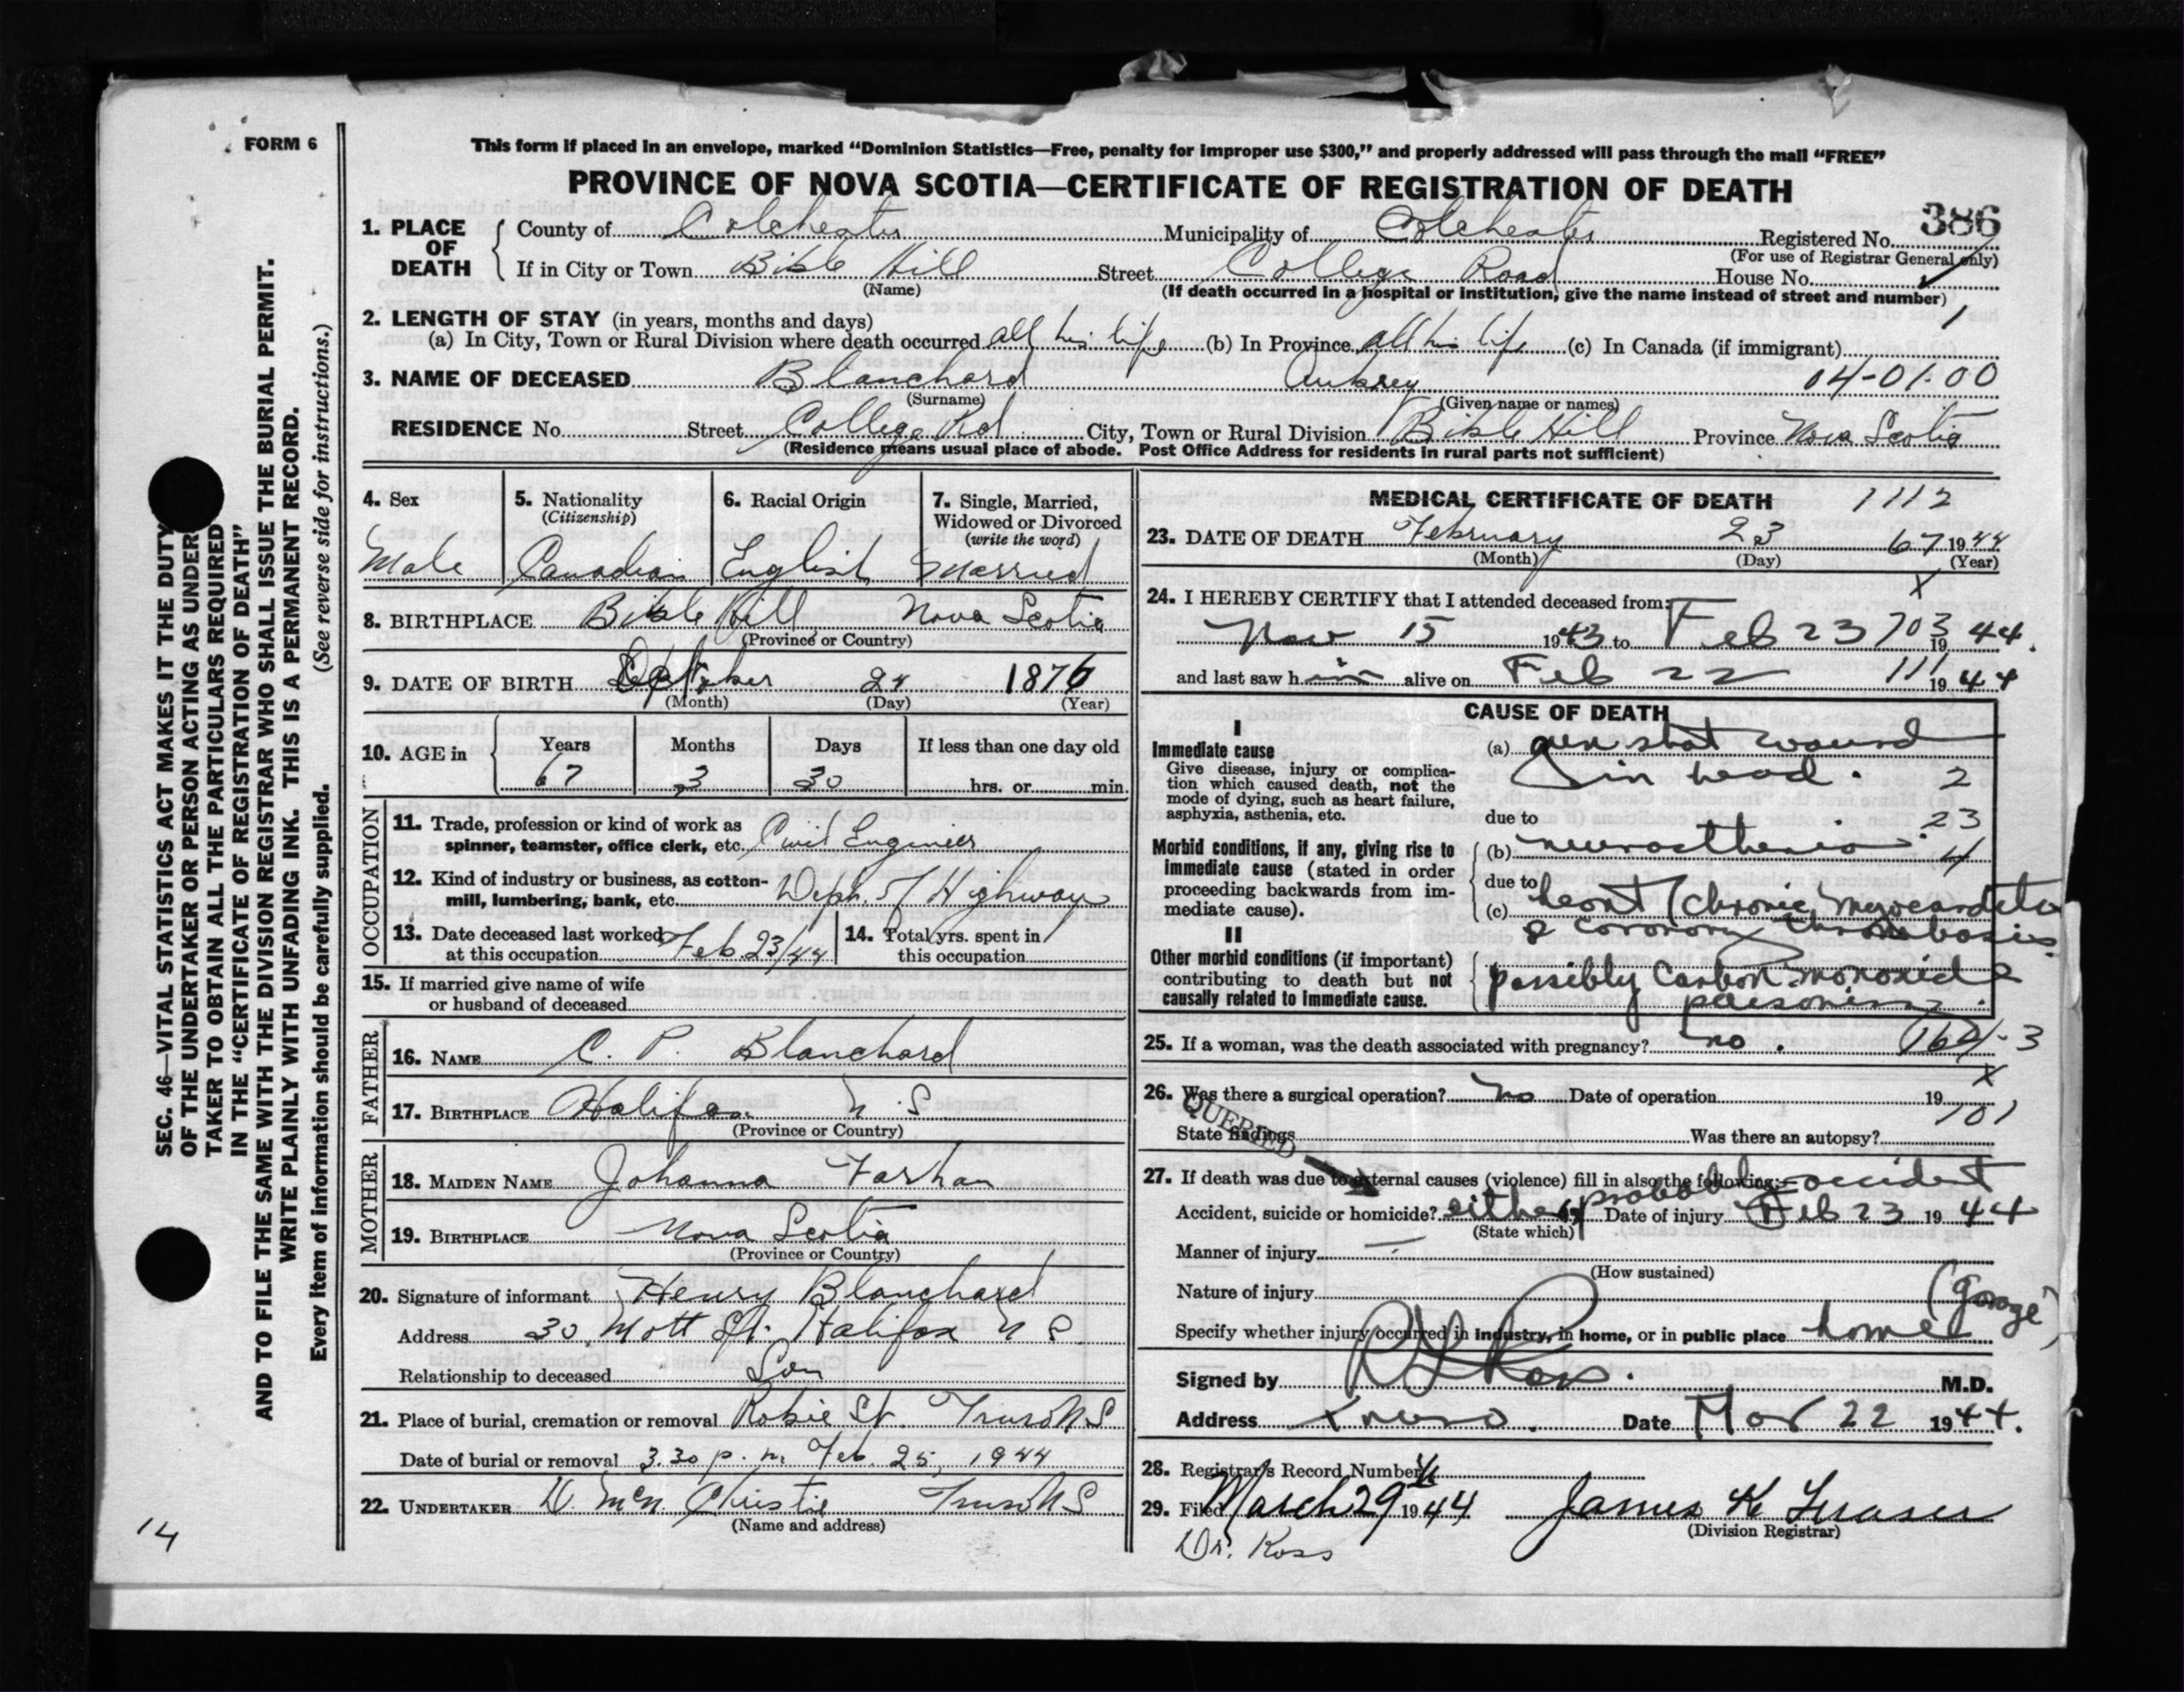 FORM 6
This form if placed in an envelope, marked "Dominion Statistics—Free, penalty for improper use $300," and properly addressed will pass through the mail "FREE"
PROVINCE OF NOVA SCOTIA—CERTIFICATE OF REGISTRATION OF DEATH
386
1. PLACE OF DEATH
County of Colchester Municipality of Colchester Registered No.
(For use of Registrar General only)
If in City or Town Bible Hill Street College Road House No.
(Name) (If death occurred in a hospital or institution, give the name instead of street and number)
1
2. LENGTH OF STAY (in years, months and days)
(a) In City, Town or Rural Division where death occurred all his life (b) In Province all his life (c) In Canada (if immigrant)
3. NAME OF DECEASED Blanchard Aubrey 04-01-00
(Surname) (Given name or names)
RESIDENCE No. Street College Rd City, Town or Rural Division Bible Hill Province Nova Scotia
(Residence means usual place of abode. Post Office Address for residents in rural parts not sufficient)
4. Sex
Male
5. Nationality
(Citizenship)
Canadian
6. Racial Origin
English
7. Single, Married,
Widowed or Divorced
(write the word)
Married
8. BIRTHPLACE Bible Hill Nova Scotia
(Province or Country)
9. DATE OF BIRTH 24 1876
(Month) (Day) (Year)
10. AGE in Years Months Days If less than one day old
67 3 30 hrs. or min.
OCCUPATION
11. Trade, profession or kind of work as
spinner, teamster, office clerk, etc. Civil Engineer
12. Kind of industry or business, as cotton-
mill, lumbering, bank, etc. Dept. of Highways
13. Date deceased last worked
at this occupation Feb 23/44
14. Total yrs. spent in
this occupation
15. If married give name of wife
or husband of deceased
FATHER
16. NAME C. P. Blanchard
17. BIRTHPLACE Halifax N. S
(Province or Country)
MOTHER
18. MAIDEN NAME Johanna
19. BIRTHPLACE Nova Scotia
(Province or Country)
20. Signature of informant Henry Blanchard
Address 30 Mott St. Halifax N S
Relationship to deceased Son
21. Place of burial, cremation or removal Robie St. Truro N S
Date of burial or removal 3.30 p. m. Feb. 25, 1944
22. UNDERTAKER D. McN. Christie Truro N S
(Name and address)
MEDICAL CERTIFICATE OF DEATH 1112
23. DATE OF DEATH February 23 67 1944
(Month) (Day) (Year)
X
24. I HEREBY CERTIFY that I attended deceased from:
Nov 15 1943 to Feb 23 703 1944.
and last saw him alive on Feb 22 111 1944
CAUSE OF DEATH
I
Immediate cause
Give disease, injury or complica-
tion which caused death, not the
mode of dying, such as heart failure,
asphyxia, asthenia, etc.
(a) gun shot wound
in head. 2
due to 23
Morbid conditions, if any, giving rise to
immediate cause (stated in order
proceeding backwards from im-
mediate cause).
(b) neurasthenia. 4
due to
(c) heart (chronic myocarditis
& coronary thrombosis.
II
Other morbid conditions (if important)
contributing to death but not
causally related to immediate cause.
possibly Carbon monoxide
poisoning.
25. If a woman, was the death associated with pregnancy? no. 164-3
X
26. Was there a surgical operation? No Date of operation 19
101
QUERIED
State findings Was there an autopsy?
27. If death was due to external causes (violence) fill in also the following:
probably accident
Accident, suicide or homicide? either Date of injury Feb 23 1944
(State which)
Manner of injury —
(How sustained)
Nature of injury
(garage)
Specify whether injury occurred in industry, in home, or in public place home
Signed by Ross. M.D.
Address Truro. Date Mar 22 1944.
28. Registrar's Record Number
29. Filed March 29 1944 James K Fraser
(Division Registrar)
Dr. Ross
14
SEC. 46—VITAL STATISTICS ACT MAKES IT THE DUTY
OF THE UNDERTAKER OR PERSON ACTING AS UNDER-
TAKER TO OBTAIN ALL THE PARTICULARS REQUIRED
IN THE "CERTIFICATE OF REGISTRATION OF DEATH"
AND TO FILE THE SAME WITH THE DIVISION REGISTRAR WHO SHALL ISSUE THE BURIAL PERMIT.
WRITE PLAINLY WITH UNFADING INK. THIS IS A PERMANENT RECORD.
Every item of information should be carefully supplied. (See reverse side for instructions.)